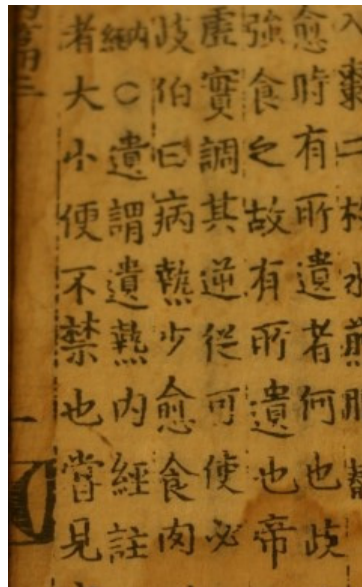 入棗二枚水煎服
愈時有所遺者何也歧
強食之故有所遺也帝
虛實調其逆從可使必
歧伯曰病熱少愈食肉
納○遺謂遺熱內經註
者大小便不禁也嘗見